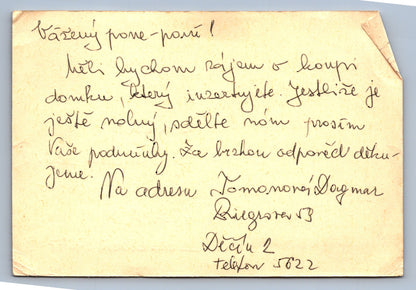 Vážený pane-paní!
Měli bychom zájem o koupi
domku, který inzerujete. Jestliže je
ještě volný, sdělte nám prosím
Vaše podmínky. Za brzkou odpověď děku-
jeme.
Na adresu Tomanová Dagmar
Riegrova 53
Děčín 2
telefon 5622